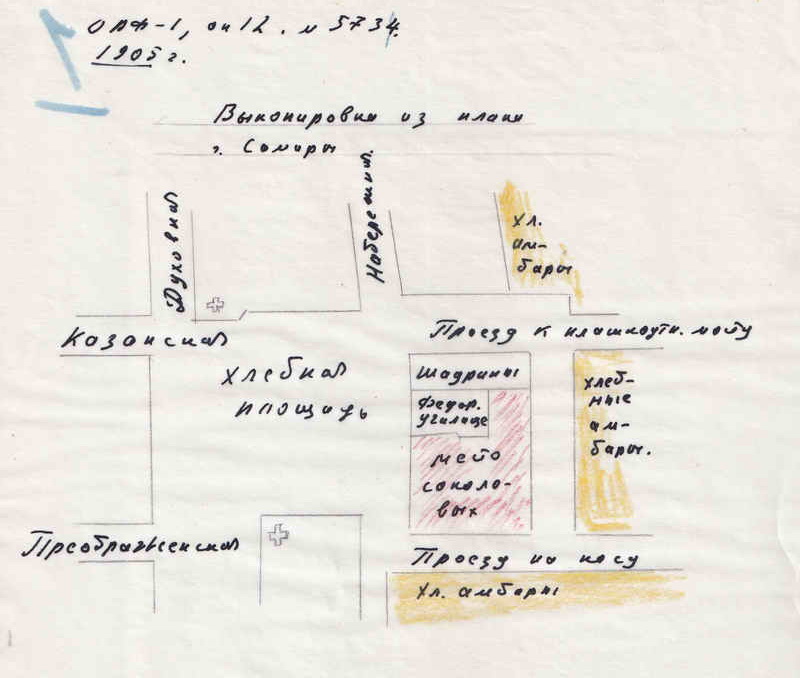 ОРФ-1, оп 12. м 5734.
1905 г.
Выкопировка из плана
г. Самары
Духовная
Набережная
хл.
ам-
бары
Казанская
Проезд к плашкоутн. мосту
хлебная
площадь
Шадрины
Федор.
училище
место
соколо-
вых
хлеб-
ные
ам-
бары.
Преображенская
Проезд на косу
хл. амбары